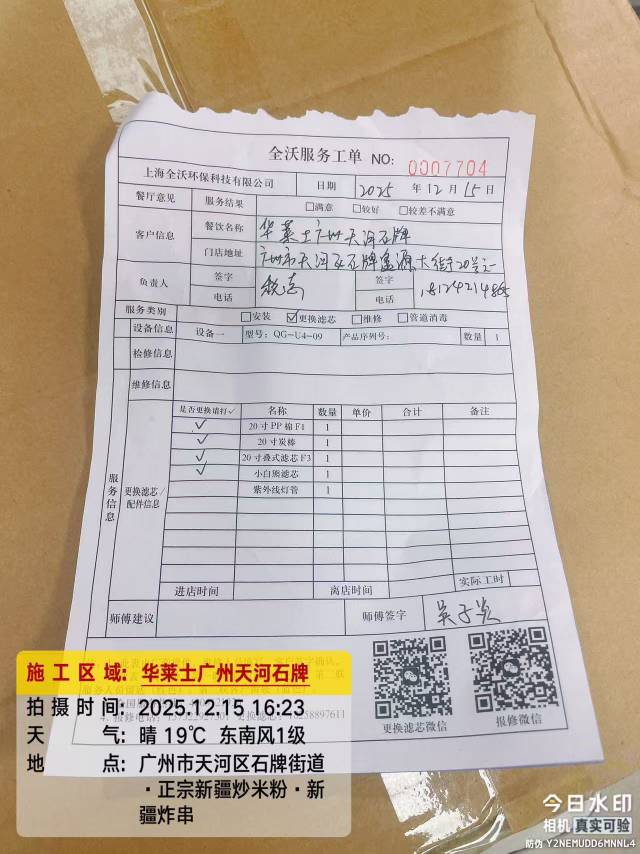 全沃服务工单 NO: 0007704
上海全沃环保科技有限公司 日期 2025 年 12 月 15 日
餐厅意见 服务结果 □满意 □较好 □较差不满意
客户信息 餐饮名称 华莱士广州天河石牌
门店地址 广州市天河区石牌逢源大街20号之一
负责人 签字 签字
电话 电话
服务类别 □安装 ☑更换滤芯 □维修 □管道消毒
设备信息 设备一 型号: QG-U4-09 产品序列号: 数量 1
检修信息
维修信息
服务信息 更换滤芯/配件信息
是否更换请打✓ 名称 数量 单价 合计 备注
✓ 20寸PP棉F1 1
✓ 20寸炭棒 1
✓ 20寸叠式滤芯F3 1
✓ 小白熊滤芯 1
紫外线灯管 1
进店时间 离店时间 实际工时
师傅建议 师傅签字
更换滤芯微信 报修微信
施工区域: 华莱士广州天河石牌
拍摄时间: 2025.12.15 16:23
天气: 晴 19℃ 东南风1级
地点: 广州市天河区石牌街道
·正宗新疆炒米粉·新
疆炸串
今日水印
相机 真实可验
防伪 Y2NEMUDD6MNNL4